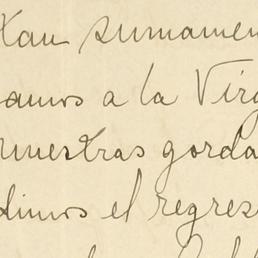 tan sumamen
amos a la Virg
nuestras gorda
dimos el regres